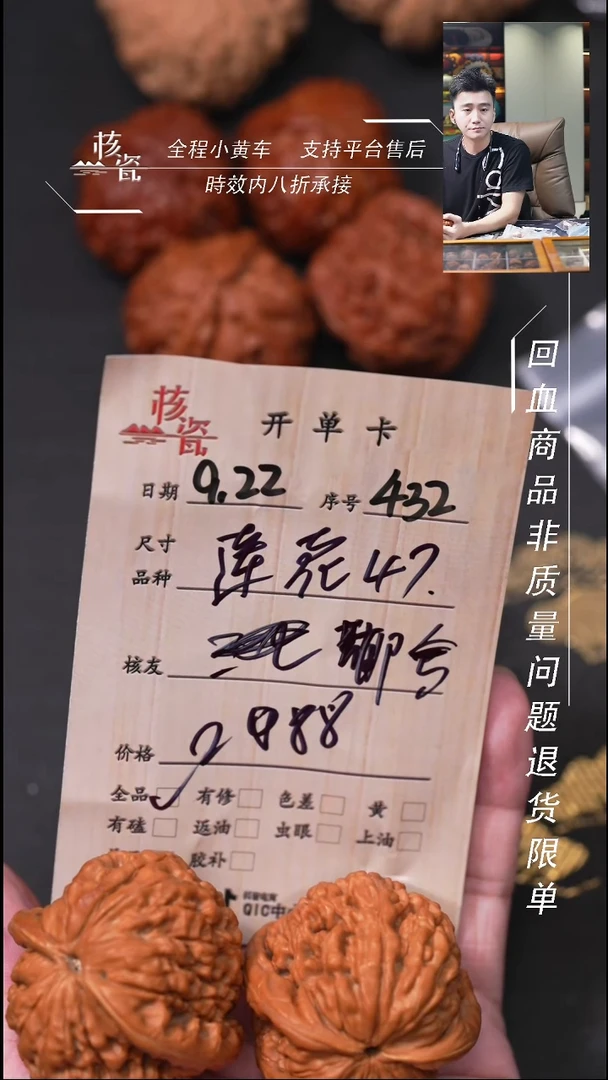 核瓷
全程小黄车 支持平台售后
時效内八折承接
回血商品非质量问题退货限单
核瓷
开单卡
日期 9.22 序号 432
尺寸
品种 47.
核友
价格 2988
全品 有修 色差 黄
有磕 返油 虫眼 上油
胶补
抖音电商
QIC中